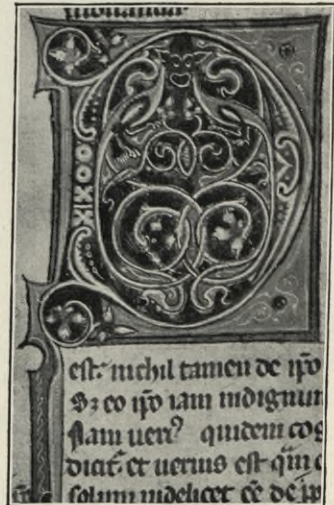 est. nichil tamen de ip̄o
Sꝫ eo ip̄o iam indignum
quidem cog
dicit̃ et uerius est
solum uidelicet ēē de ip̄